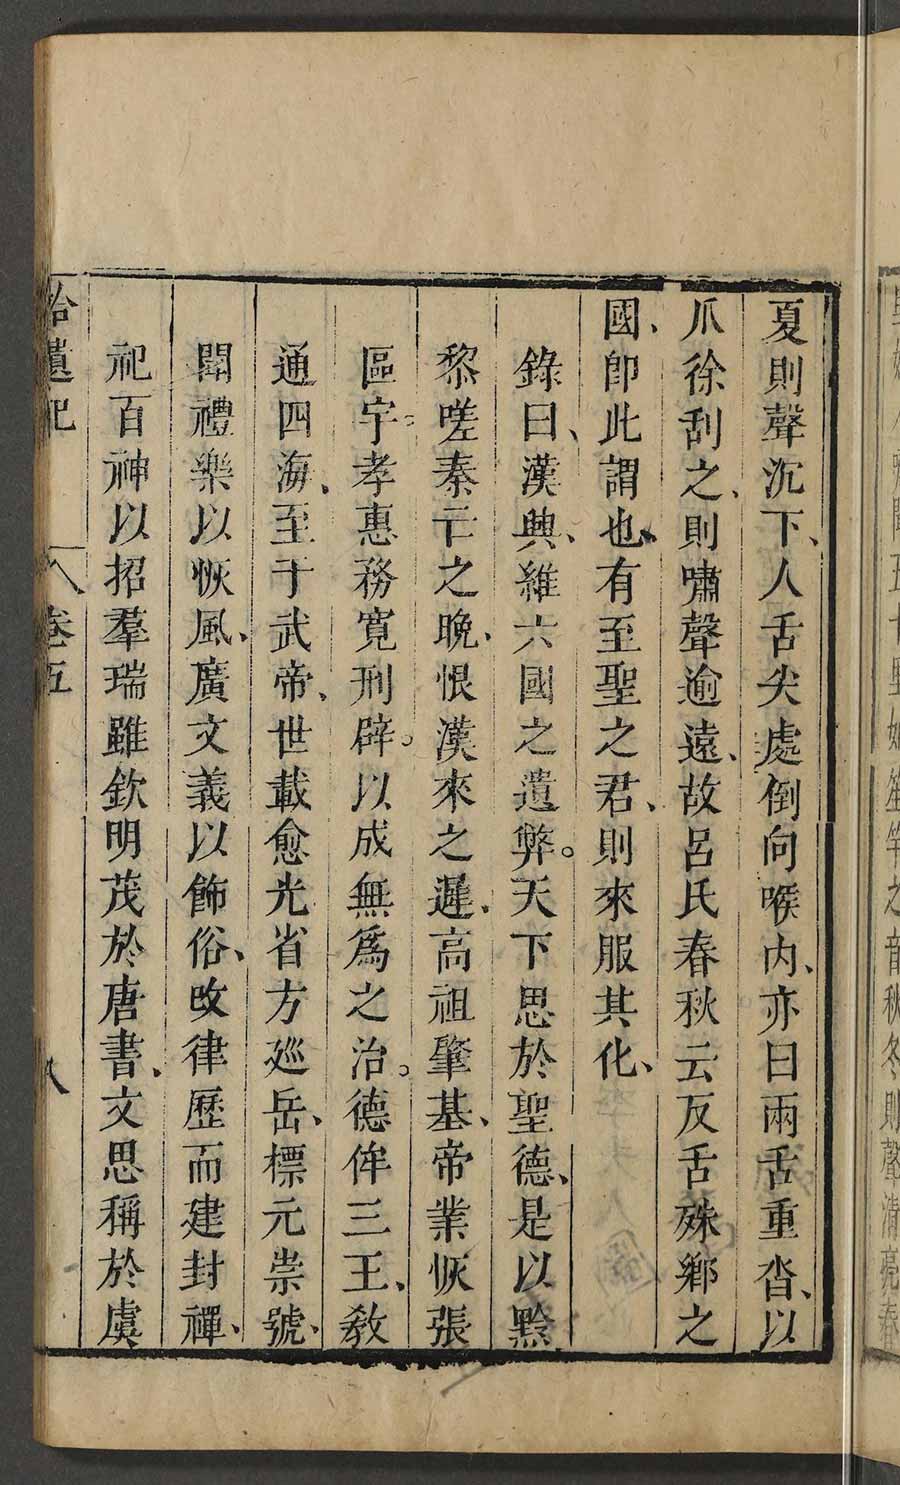 夏則聲沉下、人舌尖處倒向喉内、亦曰兩舌重沓、以
爪徐刮之、則嘯聲逾遠、故呂氏春秋云反舌殊鄉之
國、卽此謂也、有至聖之君、則來服其化、
錄曰、漢興、維六國之遺弊。天下思於聖德、是以黔
黎嗟秦亡之晚、恨漢來之遲、高祖肇基、帝業恢張
區宇。孝惠務寬刑辟。以成無爲之治。德侔三王、教
通四海、至于武帝、世載愈光省方廵岳、標元崇號、
闢禮樂以恢風、廣文義以飾俗、改律歷而建封禪、
祀百神以招羣瑞雖欽明茂於唐書、文思稱於虞
拾遺記 卷五 八